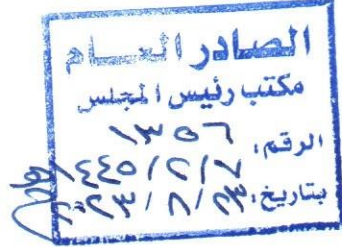 الصادر العام
مكتب رئيس المجلس
الرقم: ١٣٥٦
٧/٢/١٤٤٥
بتاريخ: ٢٣/٨/٢٠٢٣